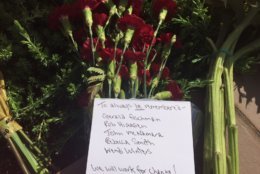 To always be remembered -
Gerald Fischman
Rob Hiaasen
John McNamara
Rebecca Smith
Wendi Winters
We will work for change!